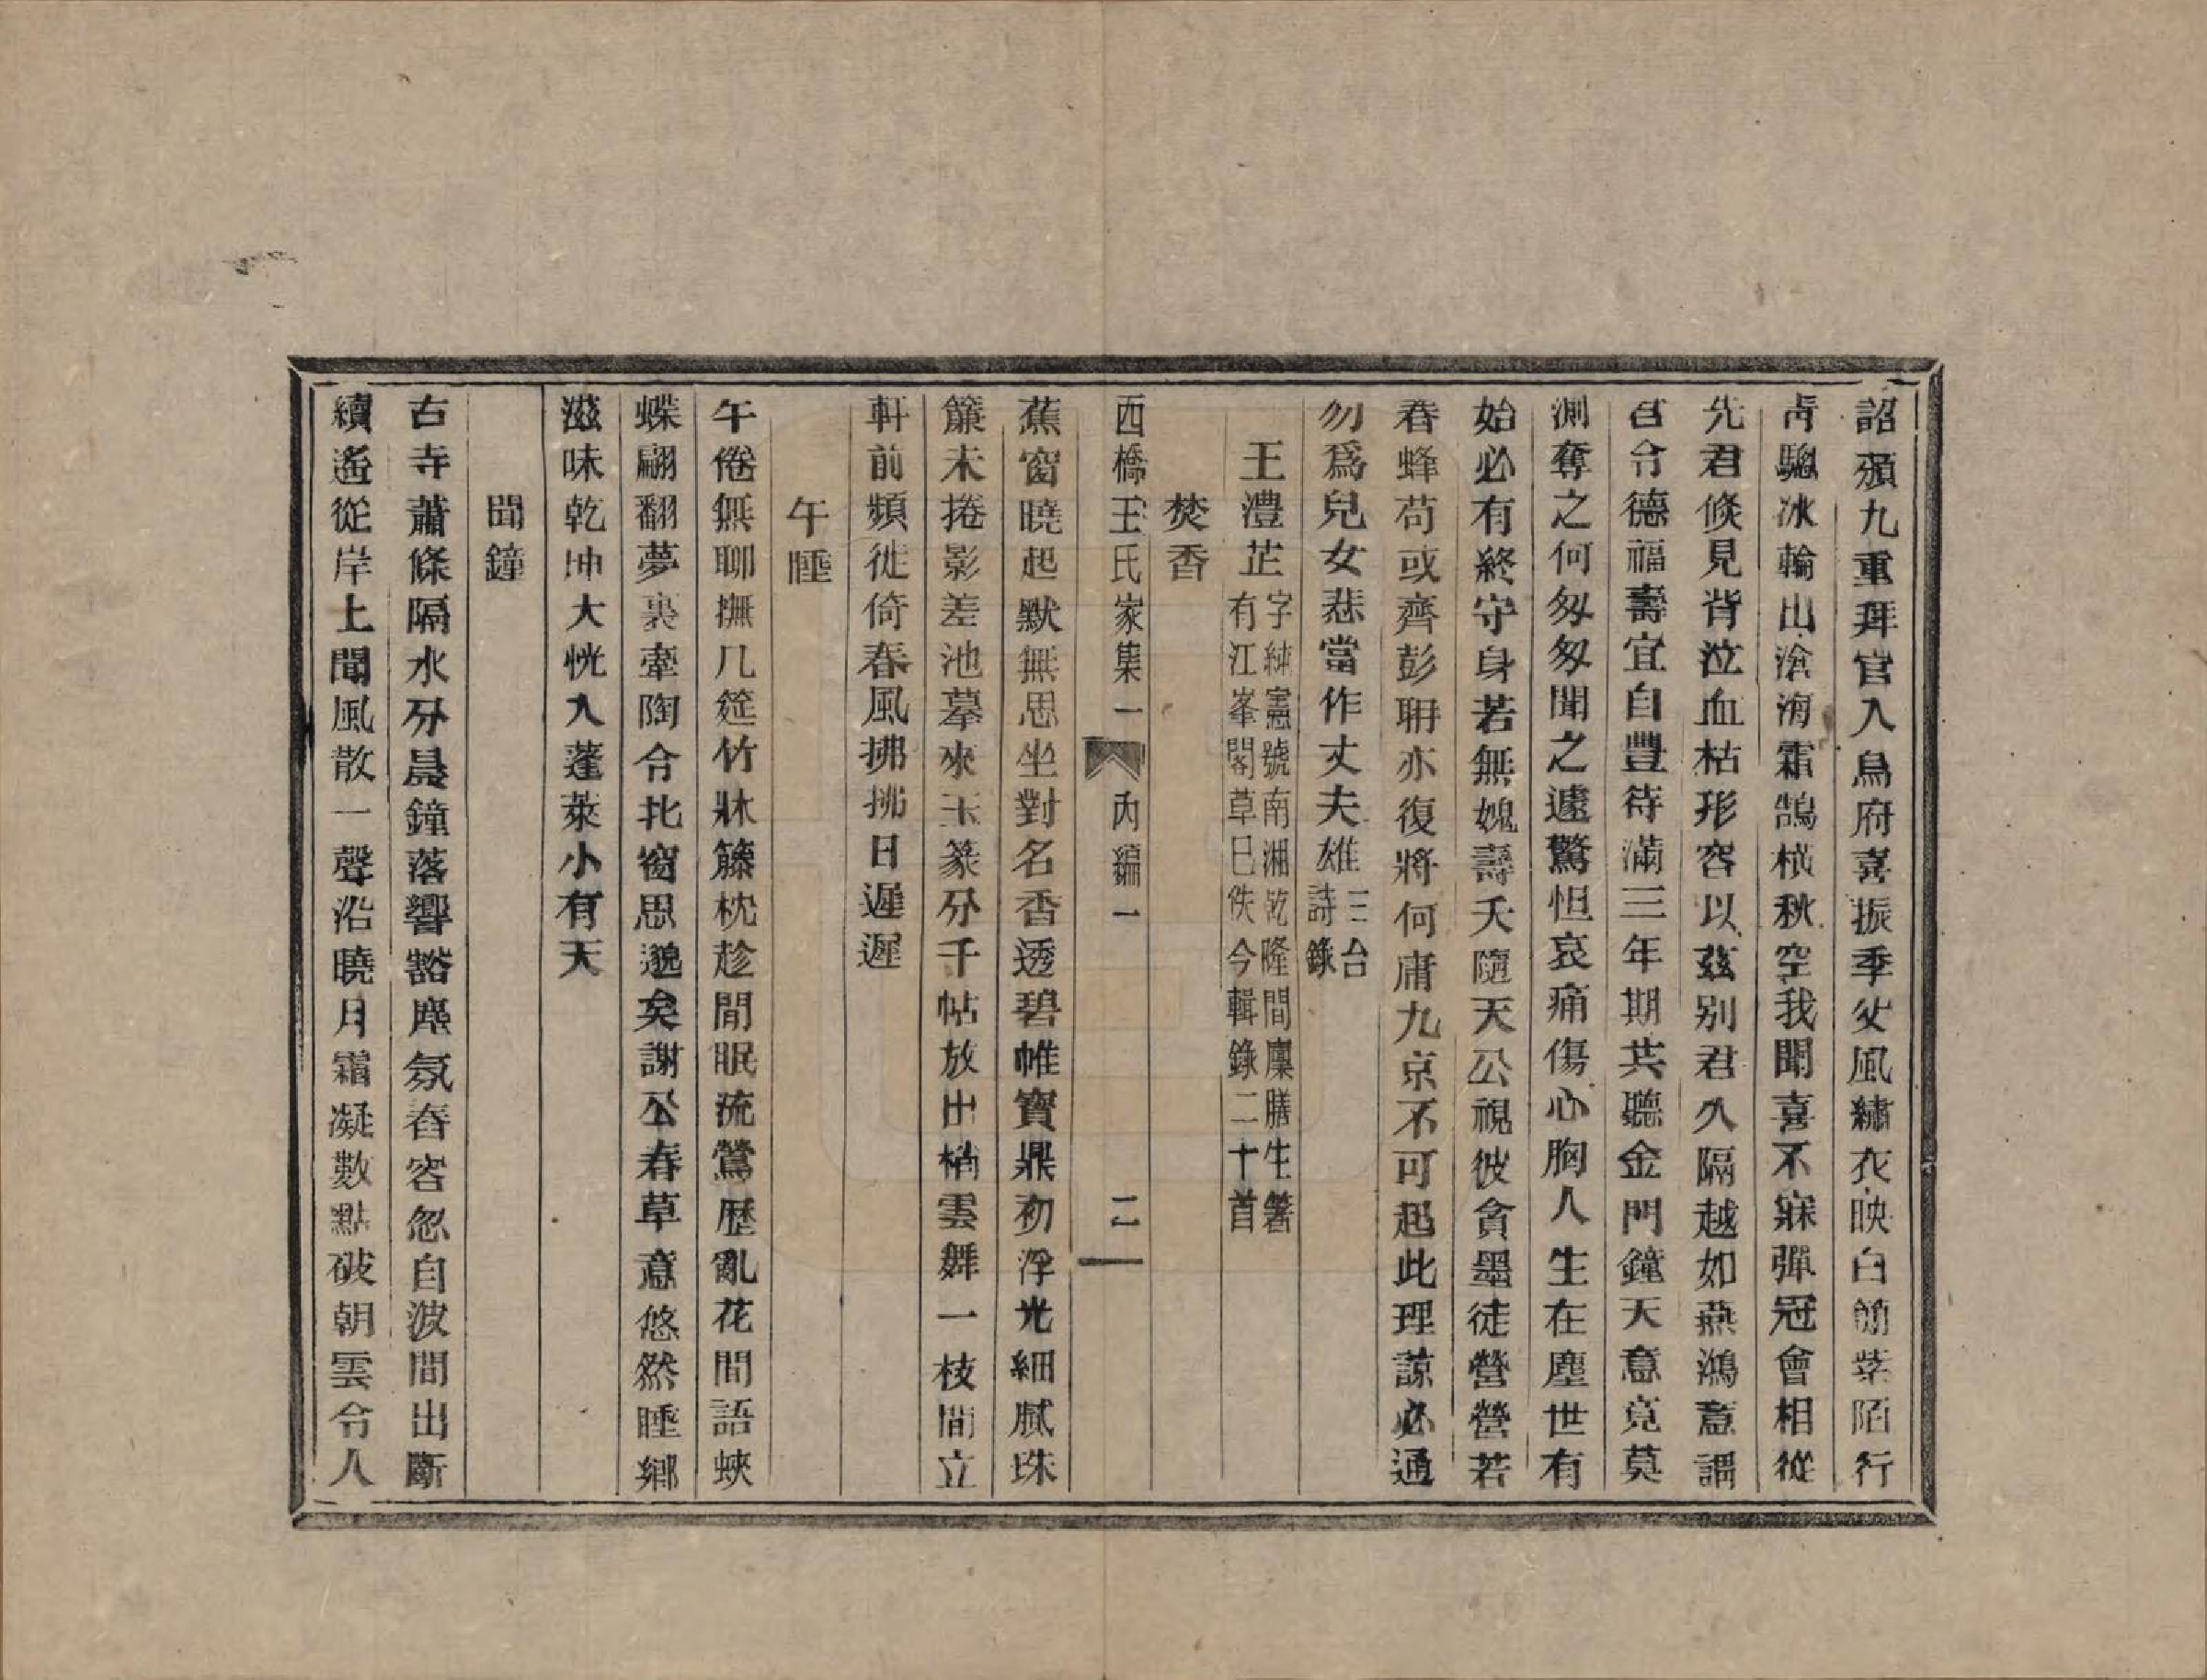 詔頒九重拜官入鳥府喜振季父風繡衣映白簡紫陌行
靑驄冰輪出滄海霜鶻橫秋空我聞喜不寐彈冠會相從
先君倏見背泣血枯形容以茲別君久隔越如燕鴻意謂
召令德福壽宜自豐待滿三年期共聽金門鐘天意竟莫
測奪之何匆匆聞之遽驚怛哀痛傷心胸人生在塵世有
始必有終守身若無媿壽夭隨天公視彼貪墨徒營營若
春蜂苟或齊彭聃亦復將何庸九京不可起此理諒必通
勿爲兒女悲當作丈夫雄三台詩錄
王澧芷字紉蘅號南湘乾隆間廩膳生箸有江峯閣草已佚今輯錄二十首
焚香
西橋王氏家集一 內編一 二
蕉窗曉起默無思坐對名香透碧帷寶鼎初浮光細膩珠
簾未捲影差池摹來玉篆分千帖放出梢雲舞一枝間立
軒前頻徙倚春風拂拂日遲遲
午睡
午倦無聊撫几筵竹牀籐枕趁閒眠流鶯歷亂花間語蛺
蝶翩翻夢裏牽陶令北窗思邈矣謝公春草意悠然睡鄉
滋味乾坤大恍入蓬萊小有天
聞鐘
古寺蕭條隔水分晨鐘落響豁塵氛舂容忽自波間出斷
續遙從岸上聞風散一聲沿曉月霜凝數點破朝雲令人